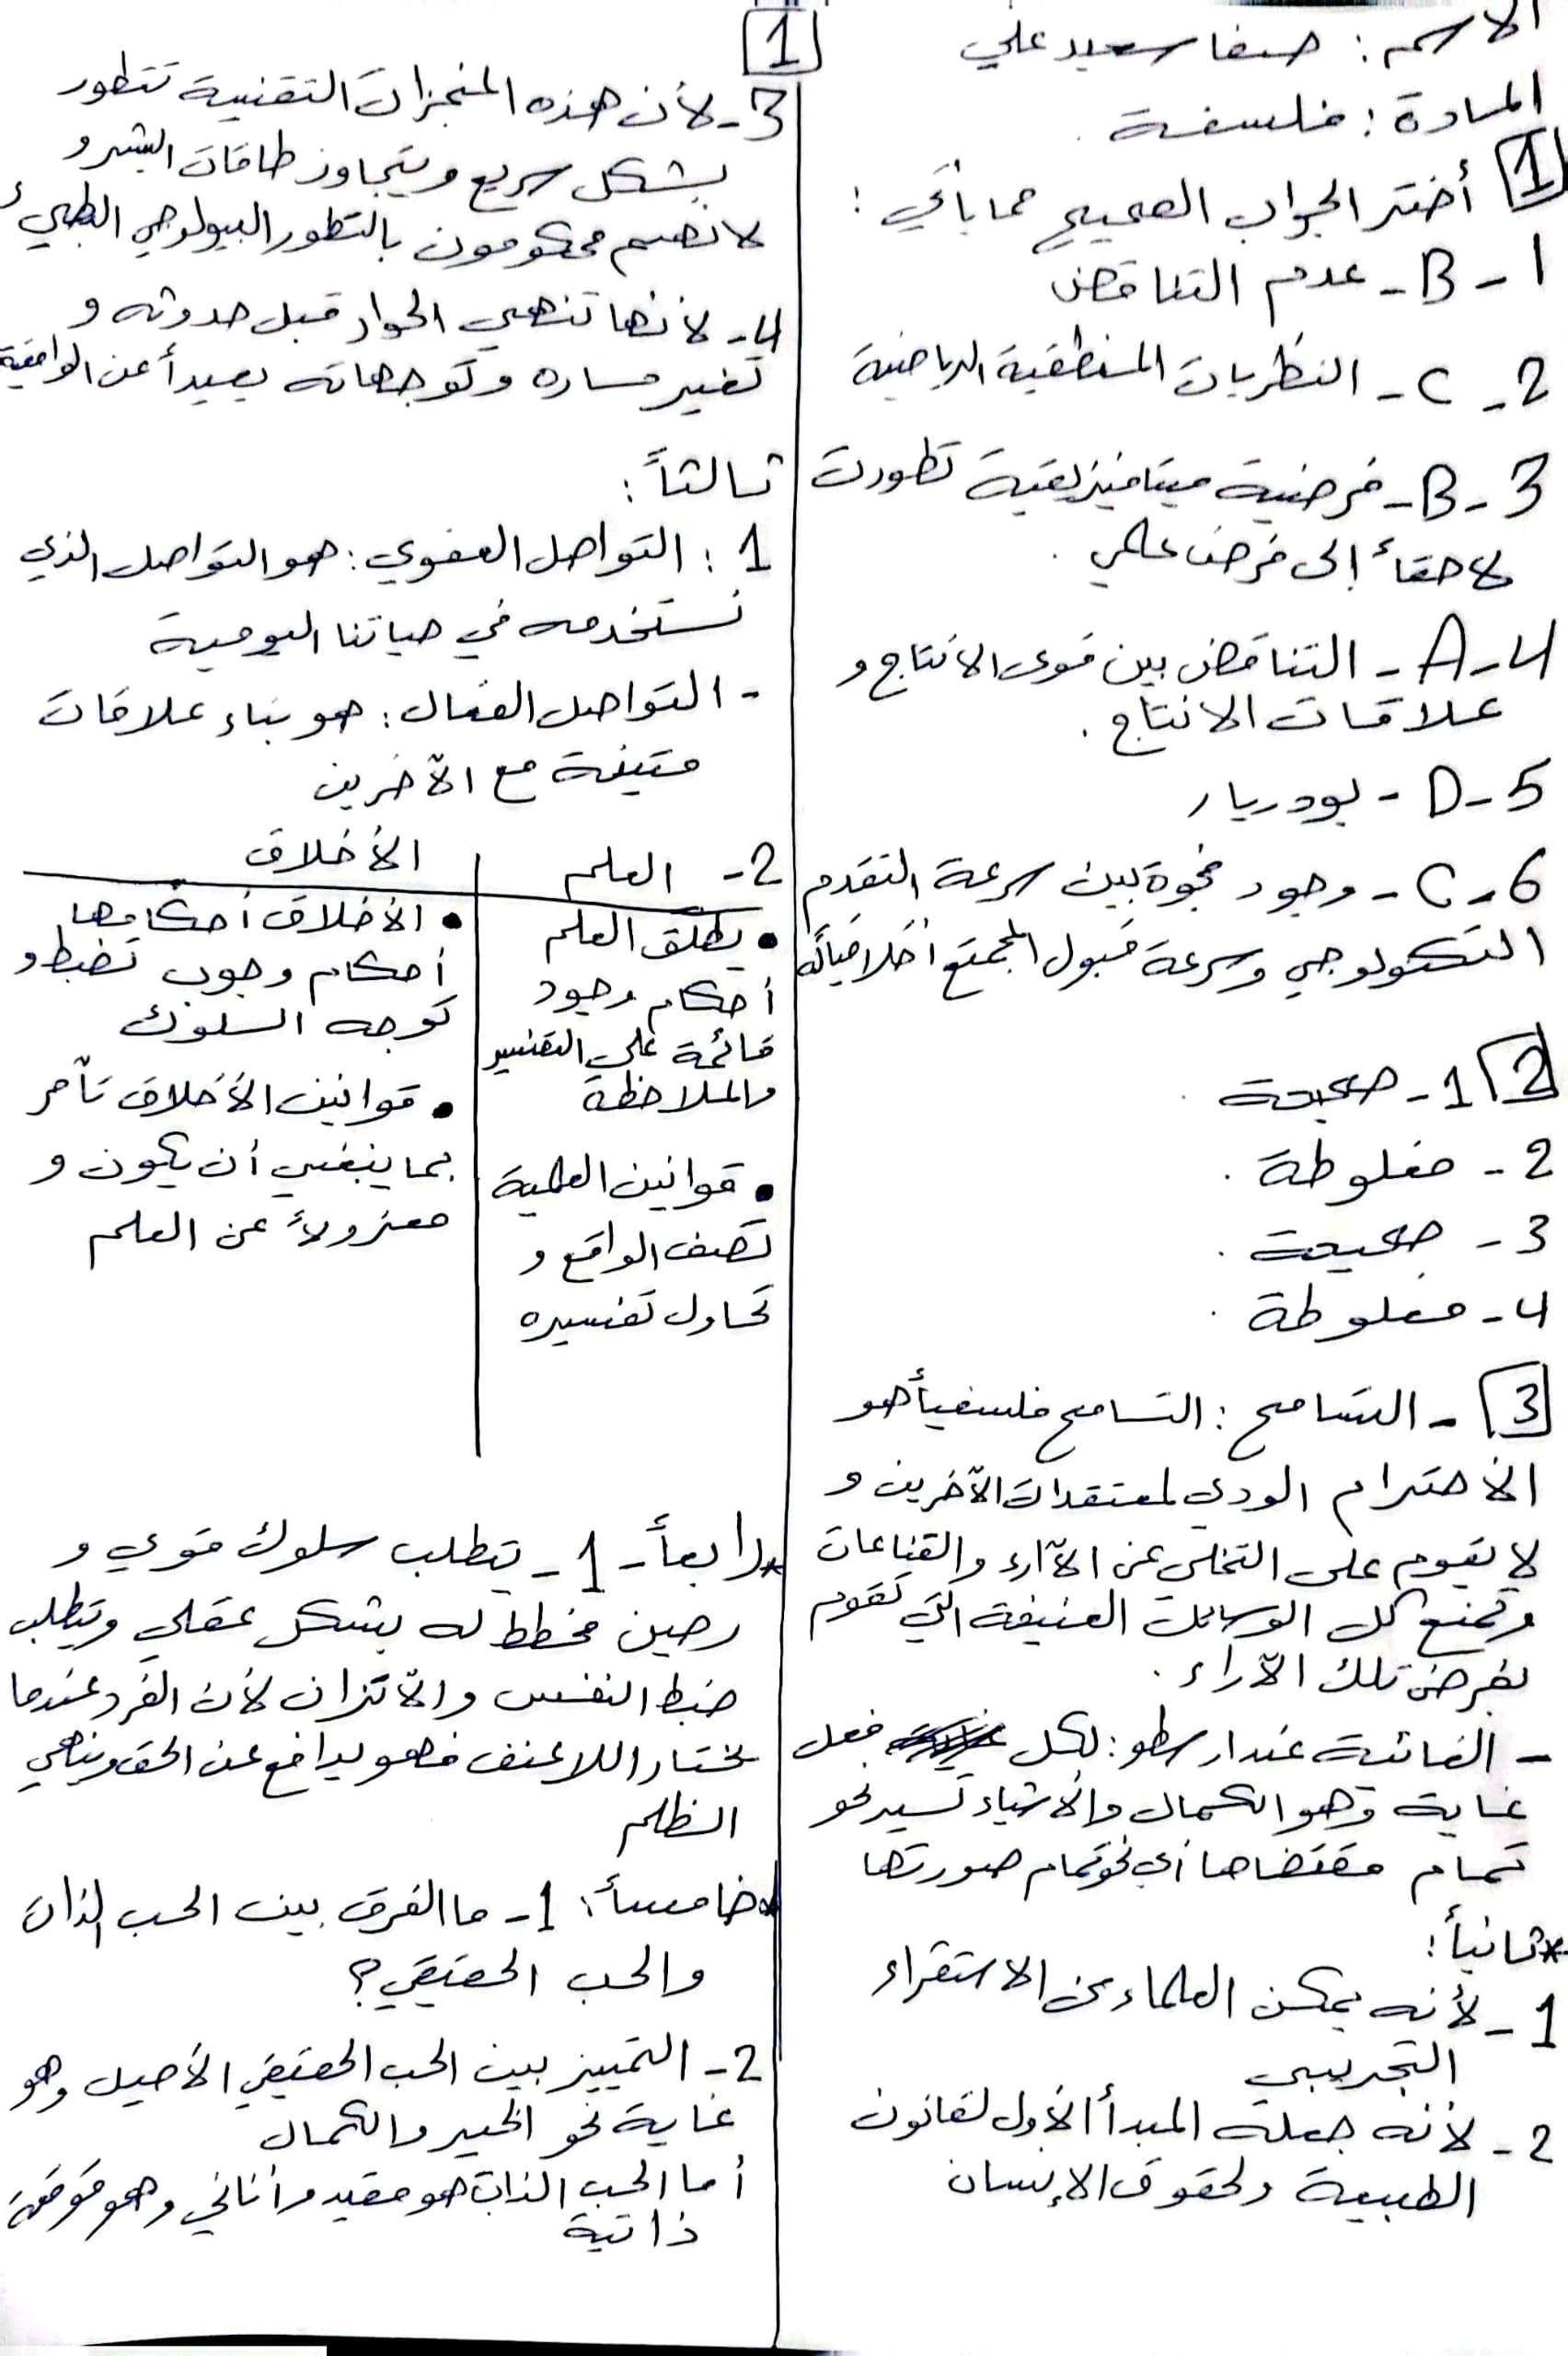 الاسم : صفا سعيد علي
المادة : فلسفة .
1 أختر الجواب الصحيح مما يأتي :
1 - B - عدم التناقض
2 - C - النظريات المنطقية الرياضية
3 - B - فرضية ميتافيزيقية تطورت
لاحقاً إلى فرض علمي .
4 - A - التناقض بين قوى الانتاج و
علاقات الانتاج .
5 - D - بودريار
6 - C - وجود فجوة بين سرعة التقدم
التكنولوجي وسرعة قبول المجتمع أخلاقياً له
2 1 - صحيحة .
2 - مغلوطة .
3 - صحيحة .
4 - مغلوطة .
3 - التسامح : التسامح فلسفياً هو
الاحترام الودي لمعتقدات الآخرين و
لا يقوم على التخلي عن الآراء والقناعات
وتمنع كل الوسائل العنيفة التي تقوم
بفرض تلك الآراء .
- الغائية عند ارسطو : لكل فعل
غاية وهو الكمال والأشياء تسير نحو
تمام مقتضاها أي نحو تمام صورتها
* ثانياً :
1 - لأنه يمكن العلماء من الاستقراء
التجريبي
2 - لأنه جعله المبدأ الأول لقانون
الطبيعة ولحقوق الإنسان
1
3 - لأن هذه المنجزات التقنية تتطور
بشكل سريع ويتجاوز طاقات البشر و
لانهم محكومون بالتطور البيولوجي البطيء
4 - لانها تنهي الحوار قبل حدوثه و
تغير مساره وتوجهاته بعيداً عن الواقعية
ثالثاً :
1 : التواصل العفوي : هو التواصل الذي
نستخدمه في حياتنا اليومية
- التواصل الفعال : هو بناء علاقات
متينة مع الآخرين
2 - العلم
• يطلق العلم
أحكام وجود
قائمة على التفسير
والملاحظة
• قوانين العلمية
تصف الواقع و
تحاول تفسيره
الأخلاق
• الأخلاق أحكامها
أحكام وجوب تضبط و
توجه السلوك
• قوانين الأخلاق تأمر
بما ينبغي أن يكون و
معزولاً عن العلم
* رابعاً - 1 - يتطلب سلوك قوي و
رصين مخطط له بشكل عقلي ويتطلب
ضبط النفس والاتزان لأن الفرد عندما
يختار اللاعنف فهو يدافع عن الحق وينهي
الظلم
* خامساً : 1 - ما الفرق بين الحب الذات
والحب الحقيقي ؟
2 - التمييز بين الحب الحقيقي الأصيل وهو
غاية نحو الخير والكمال
أما الحب الذات هو مقيد وأناني وهو
ذاتية